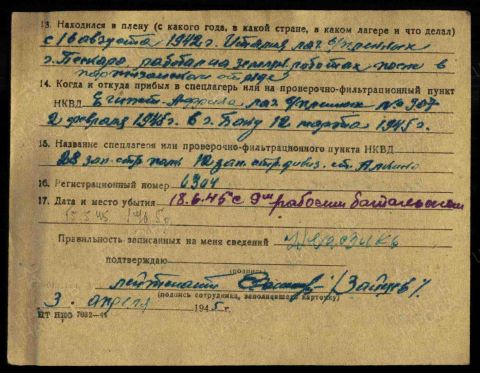 13. Находился в плену (с какого года, в какой стране, в каком лагере и что делал)
с 16 августа 1942 г. Италия лаг. в/пленных
г. Пескаро работал на земляных работах после в
партизанском отряде
14. Когда и откуда прибыл в спецлагерь или на проверочно-фильтрационный пункт
НКВД Египет-Африка лаг. в/пленных № 307
2 февраля 1945 г. в г. Баку 12 марта 1945 г.
15. Название спецлагеря или проверочно-фильтрационного пункта НКВД
28 зап. стр. полк 12 зап. стр. дивиз. ст. Аляты
16. Регистрационный номер 6304
17. Дата и место убытия 18.6.45 с 9м рабочим батальоном
Правильность записанных на меня сведений
подтверждаю
(подпись)
лейтенант /Зайцев/
3. апреля 1945 г.
(подпись сотрудника, заполнявшего карточку)
ПТ НКО 7032—44